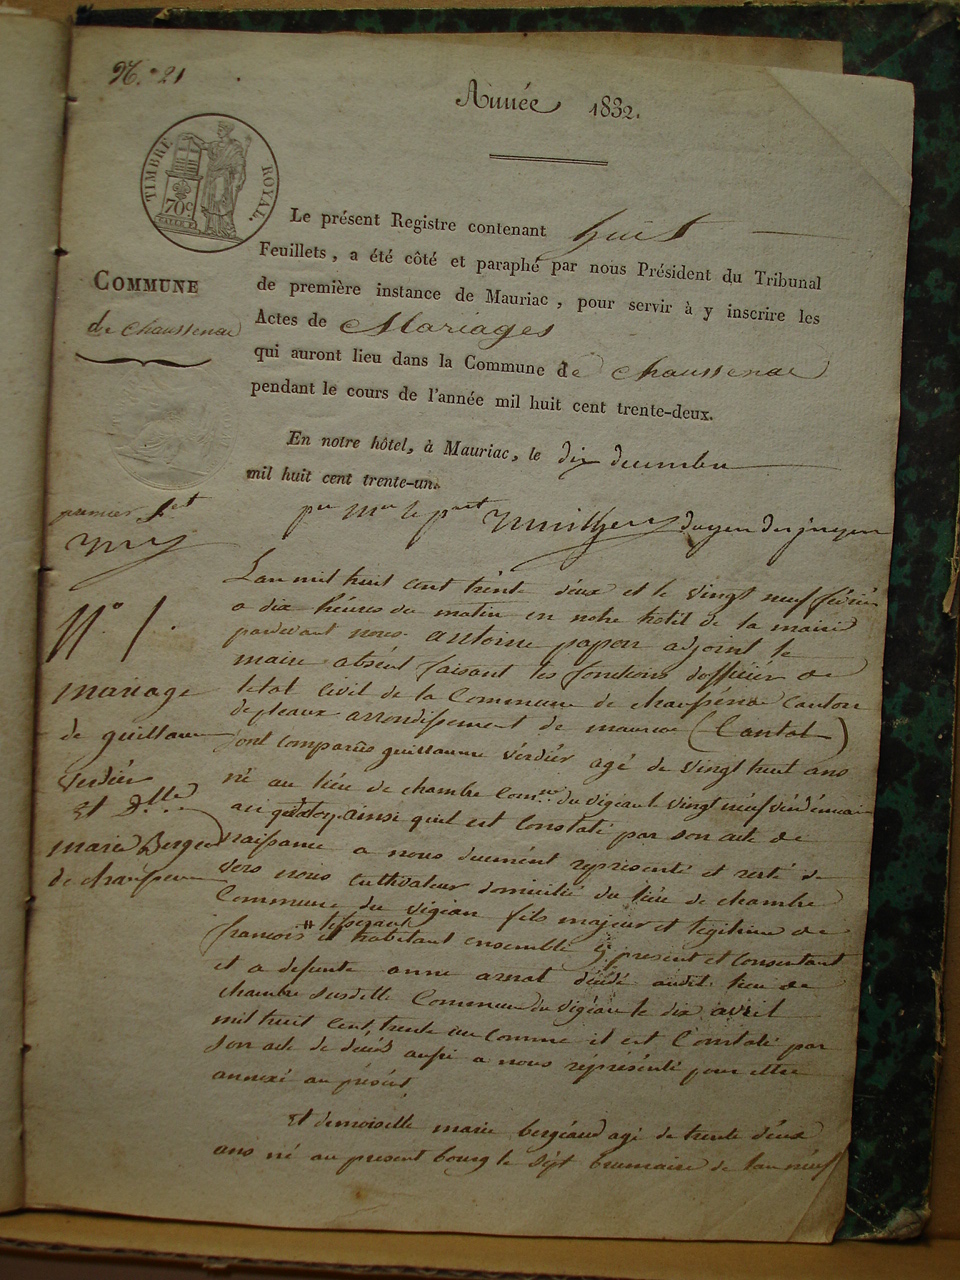 N.° 21
Année 1832.
TIMBRE ROYAL.
70c
Le présent Registre contenant huit
Feuillets, a été côté et paraphé par nous Président du Tribunal
de première instance de Mauriac, pour servir à y inscrire les
Actes de Mariages
qui auront lieu dans la Commune de Chaussenac
pendant le cours de l'année mil huit cent trente-deux.
En notre hôtel, à Mauriac, le dix decembre
mil huit cent trente-un.
COMMUNE
de Chaussenac
premier f.et
pr Mr le p.ent doyen des juges
N.° 1.
mariage
de guillaume
verdier
Et D.lle
marie Bergeaud
de chaussenac
L'an mil huit cent trente deux et le vingt neuf février
a dix heures du matin en notre hotel de la mairie
pardevant nous antoine papon adjoint le
maire absent faisant les fonctions d'officier de
letat civil de la Commune de chaussenac Canton
de pleaux arrondissement de mauriac (Cantal)
sont comparus guillaume verdier agé de vingt huit ans
né au lieu de chambre Com.ne du vigean le vingt neuf vendemiaire
an ainsi quil est constaté par son acte de
naissance a nous duement representé et resté de
vers nous cultivateur domicilié du lieu de chambre
Commune du vigean fils majeur et legitime de
francois # tisserant et habitant ensemble ci present et consentant
et a defunte anne arnat décédé audit lieu de
chambre susditte Commune du vigean le dix avril
mil huit cent trente un comme il est constaté par
son acte de décés aussi a nous réprésenté pour être
annexé au présent
Et demoiselle marie bergéaud agé de trente déux
ans né au present bourg le sept brumaire de l'an neuf